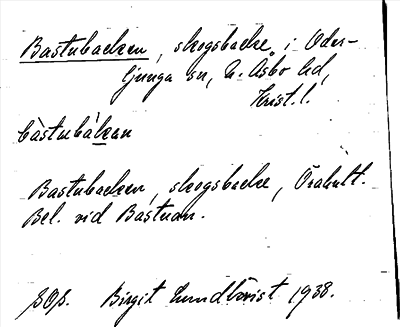 Bastubacken, skogsbacke i Oder-
ljunga sn, N. Åsbo hd,
Krist. l.
bàstubákan
Bastubacken, skogsbacke, Örahult.
Bel. vid Bastuan.
Birgit Lundkvist 1938.